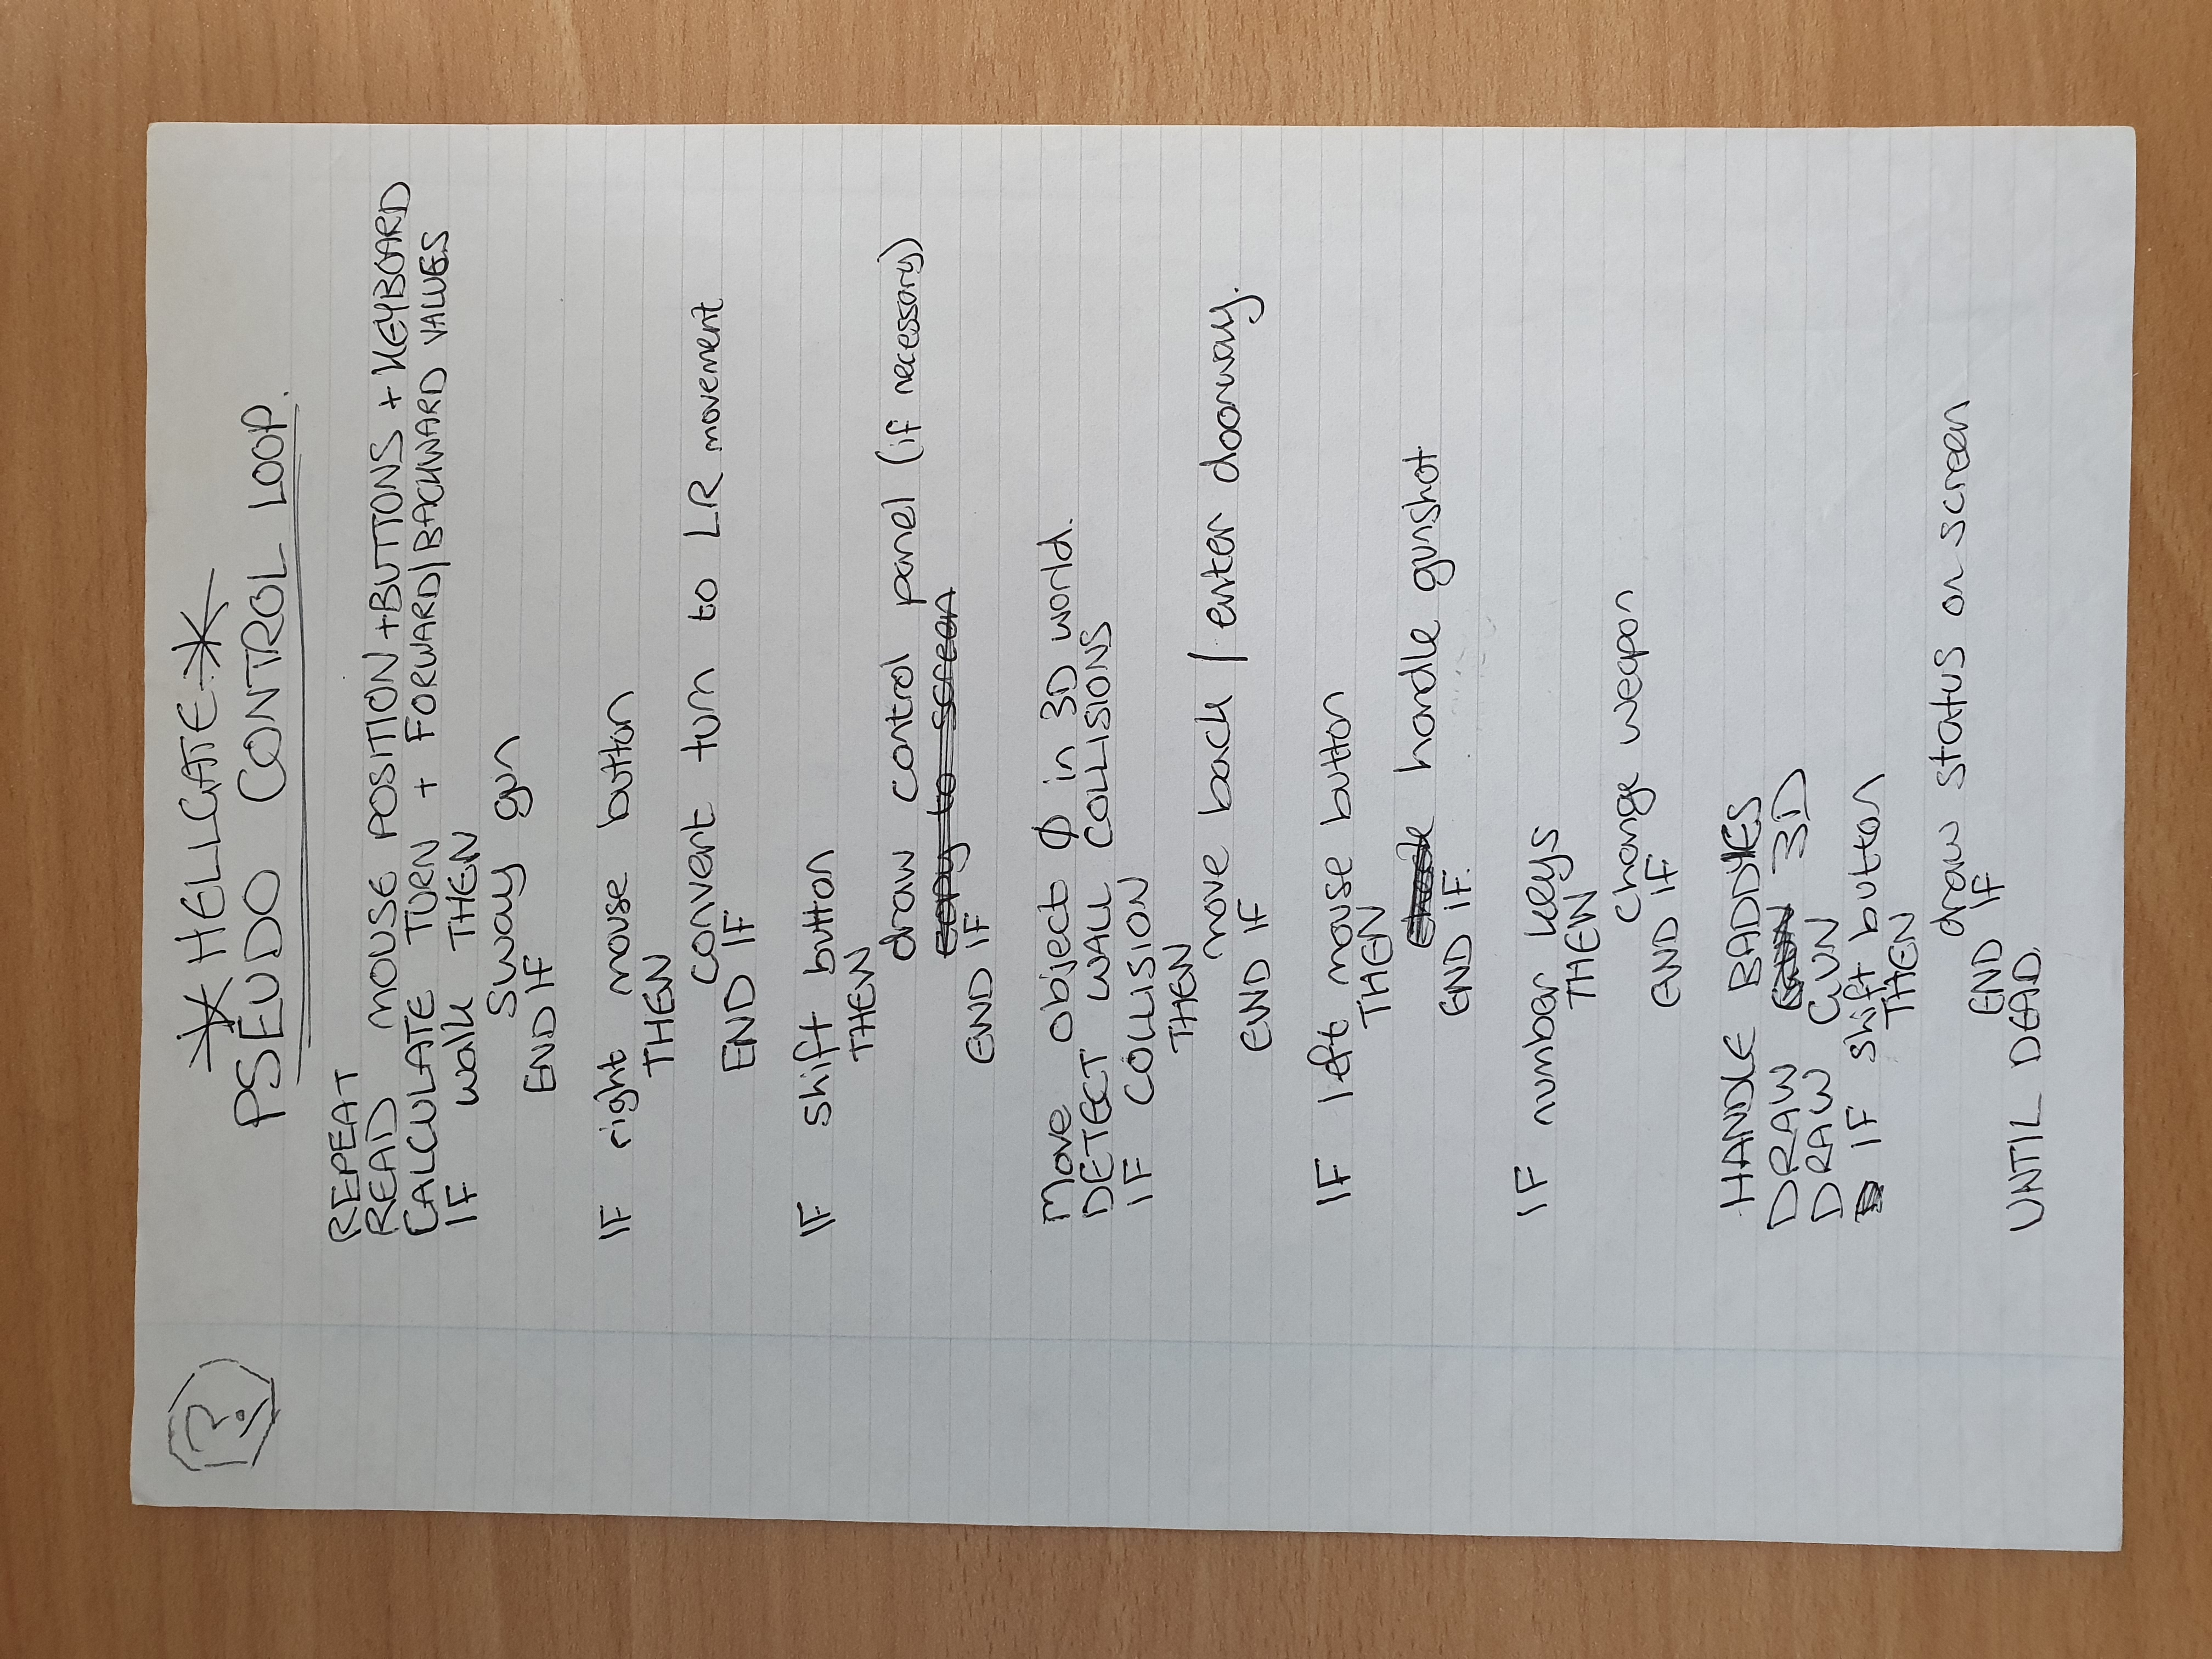 ?
* HELLGATE *
PSEUDO CONTROL LOOP.
REPEAT
READ MOUSE POSITION + BUTTONS + KEYBOARD
CALCULATE TURN + FORWARD/BACKWARD VALUES
IF walk THEN
sway gun
END IF
IF right mouse button
THEN
convert turn to LR movement
END IF
IF shift button
THEN
draw control panel (if necessary)
copy to screen
END IF
Move object Ø in 3D world.
DETECT WALL COLLISIONS
IF COLLISION
THEN
move back / enter doorway.
END IF
IF left mouse button
THEN
check handle gunshot
END IF.
IF number keys
THEN
change weapon
END IF
HANDLE BADDYIES
DRAW GUN 3D
DRAW GUN
D IF shift button
THEN
draw status on screen
END IF
UNTIL DEAD.